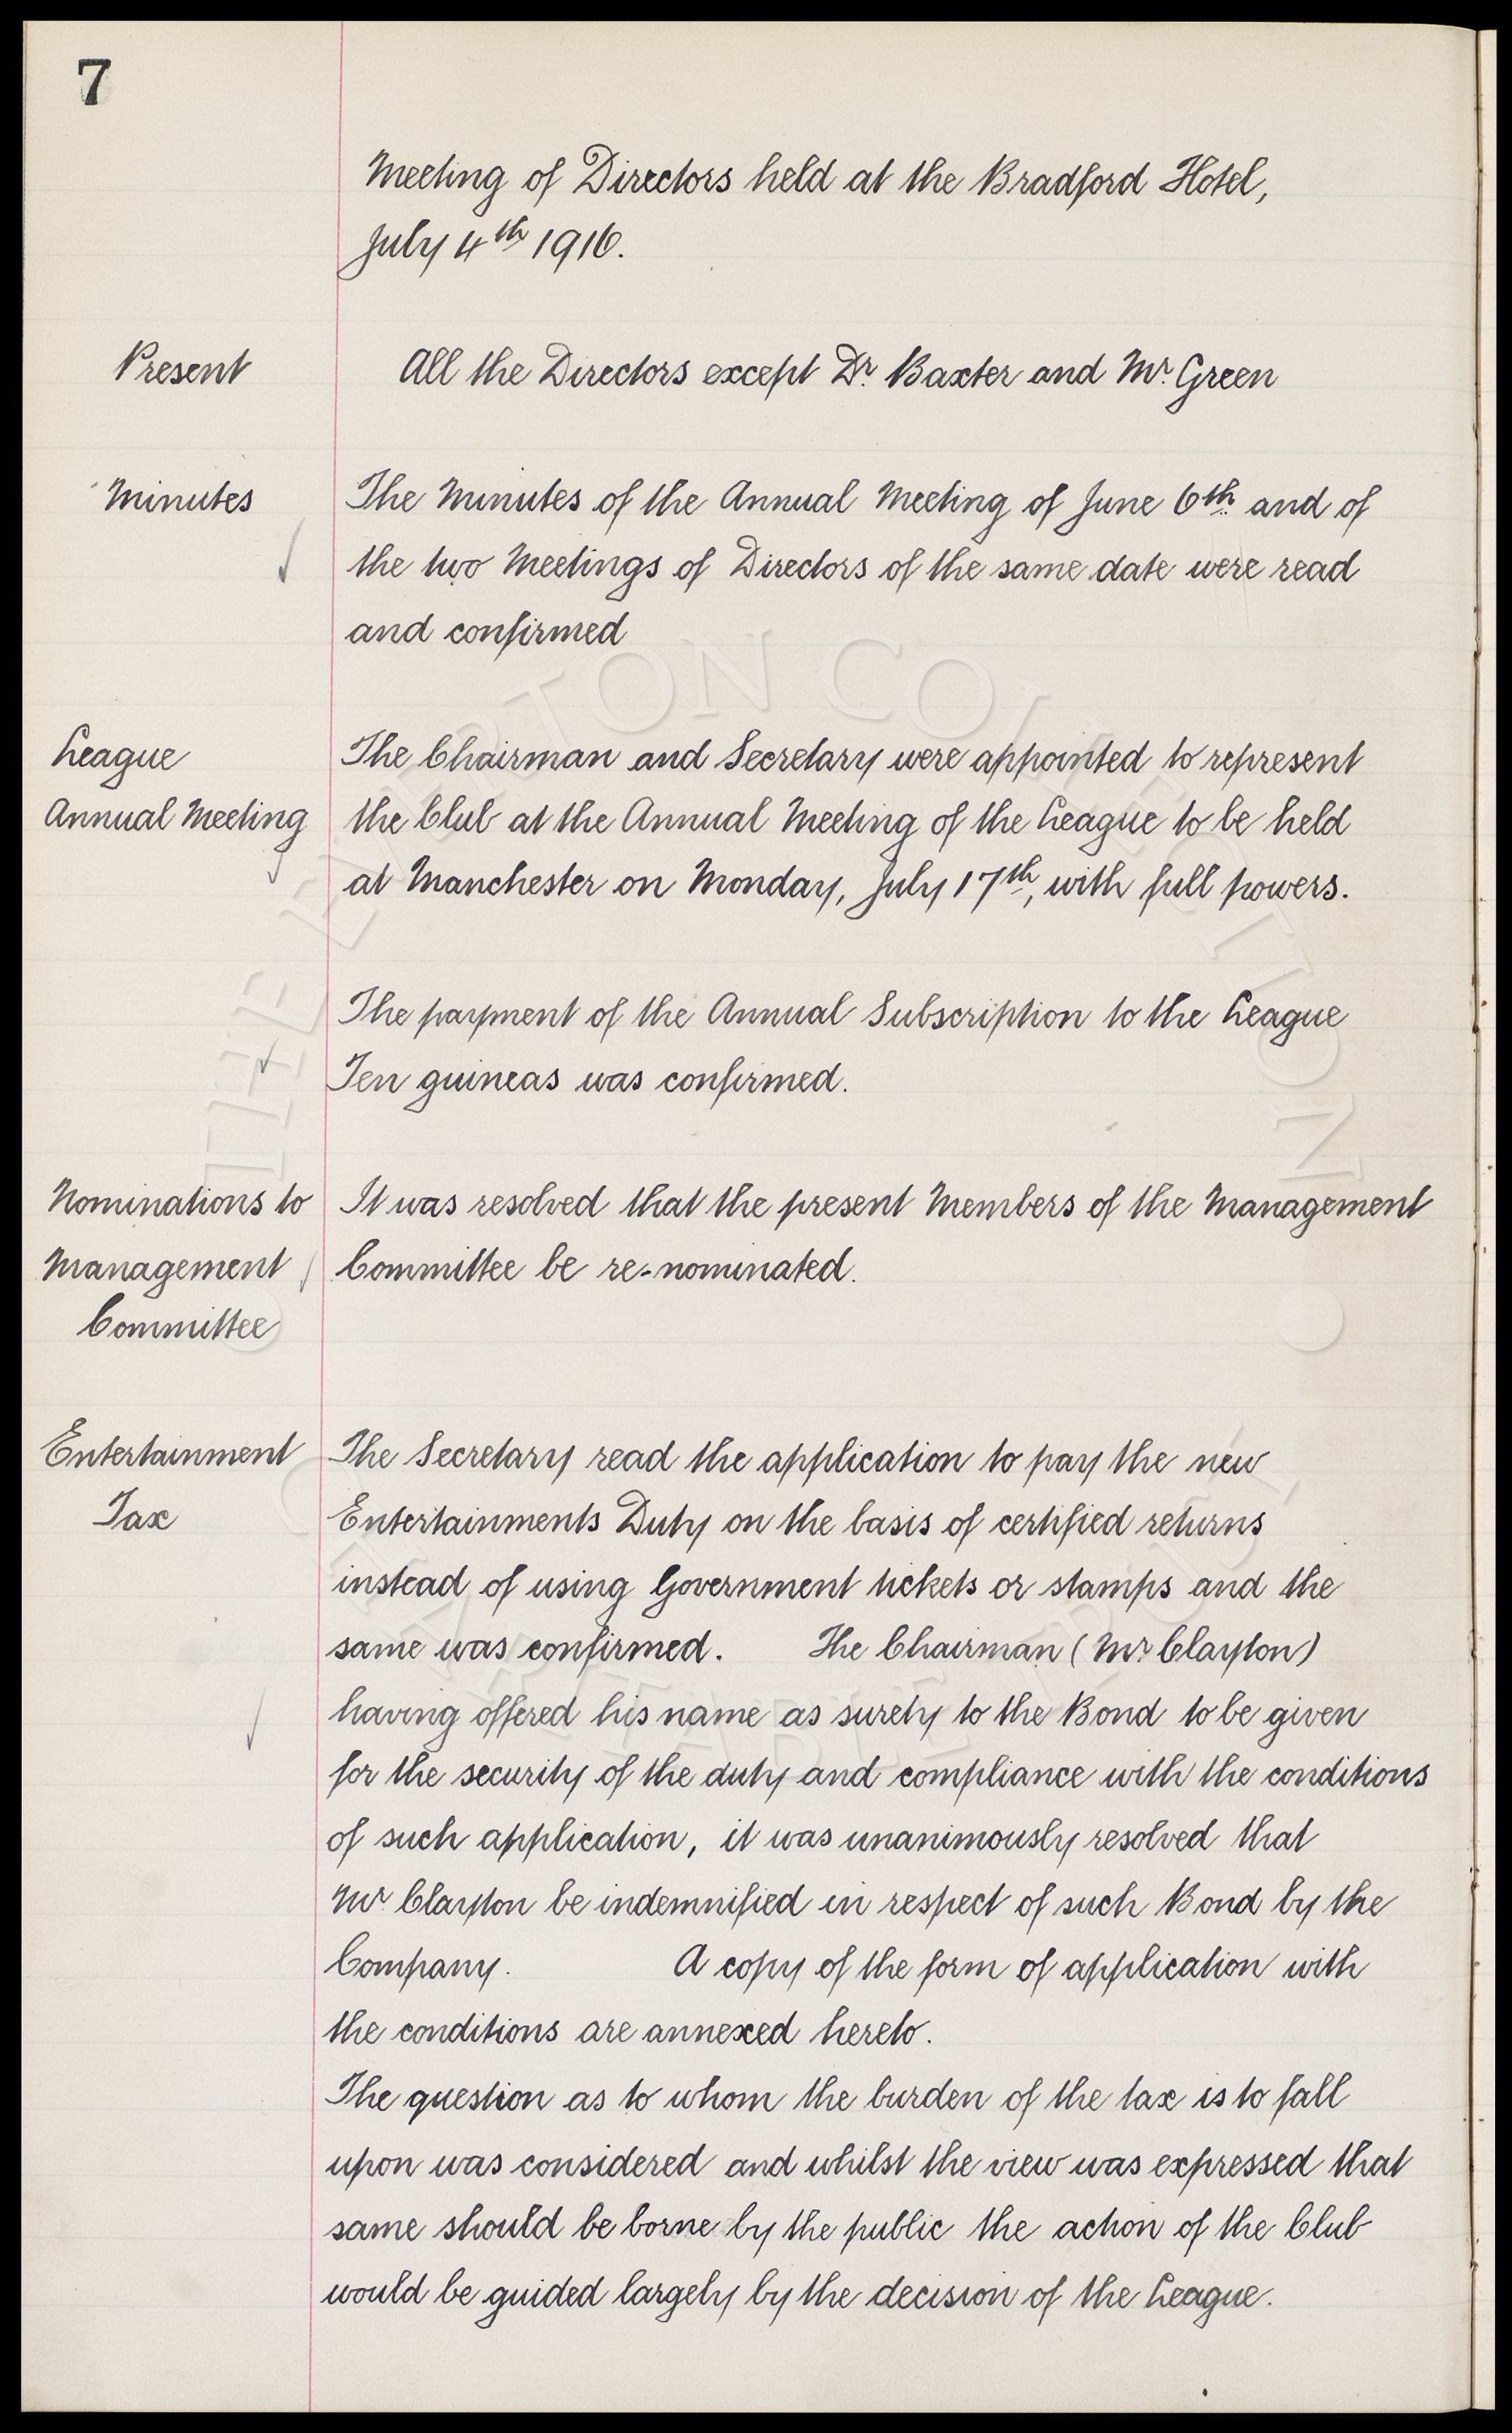 7
Meeting of Directors held at the Bradford Hotel,
July 4th 1916.
Present
All the Directors except Dr. Baxter and Mr. Green
Minutes
The Minutes of the Annual Meeting of June 6th and of
the two Meetings of Directors of the same date were read
and confirmed
League
Annual Meeting
The Chairman and Secretary were appointed to represent
the Club at the Annual Meeting of the League to be held
at Manchester on Monday, July 17th, with full powers.
The payment of the Annual Subscription to the League
Ten guineas was confirmed.
Nominations to
Management
Committee
It was resolved that the present Members of the Management
Committee be re-nominated.
Entertainment
Tax
The Secretary read the application to pay the new
Entertainments Duty on the basis of certified returns
instead of using Government tickets or stamps and the
same was confirmed. The Chairman (Mr Clayton)
having offered his name as surety to the Bond to be given
for the security of the duty and compliance with the conditions
of such application, it was unanimously resolved that
Mr. Clayton be indemnified in respect of such Bond by the
Company. A copy of the form of application with
the conditions are annexed hereto.
The question as to whom the burden of the tax is to fall
upon was considered and whilst the view was expressed that
same should be borne by the public the action of the Club
would be guided largely by the decision of the League.
THE EVERTON COLLECTION